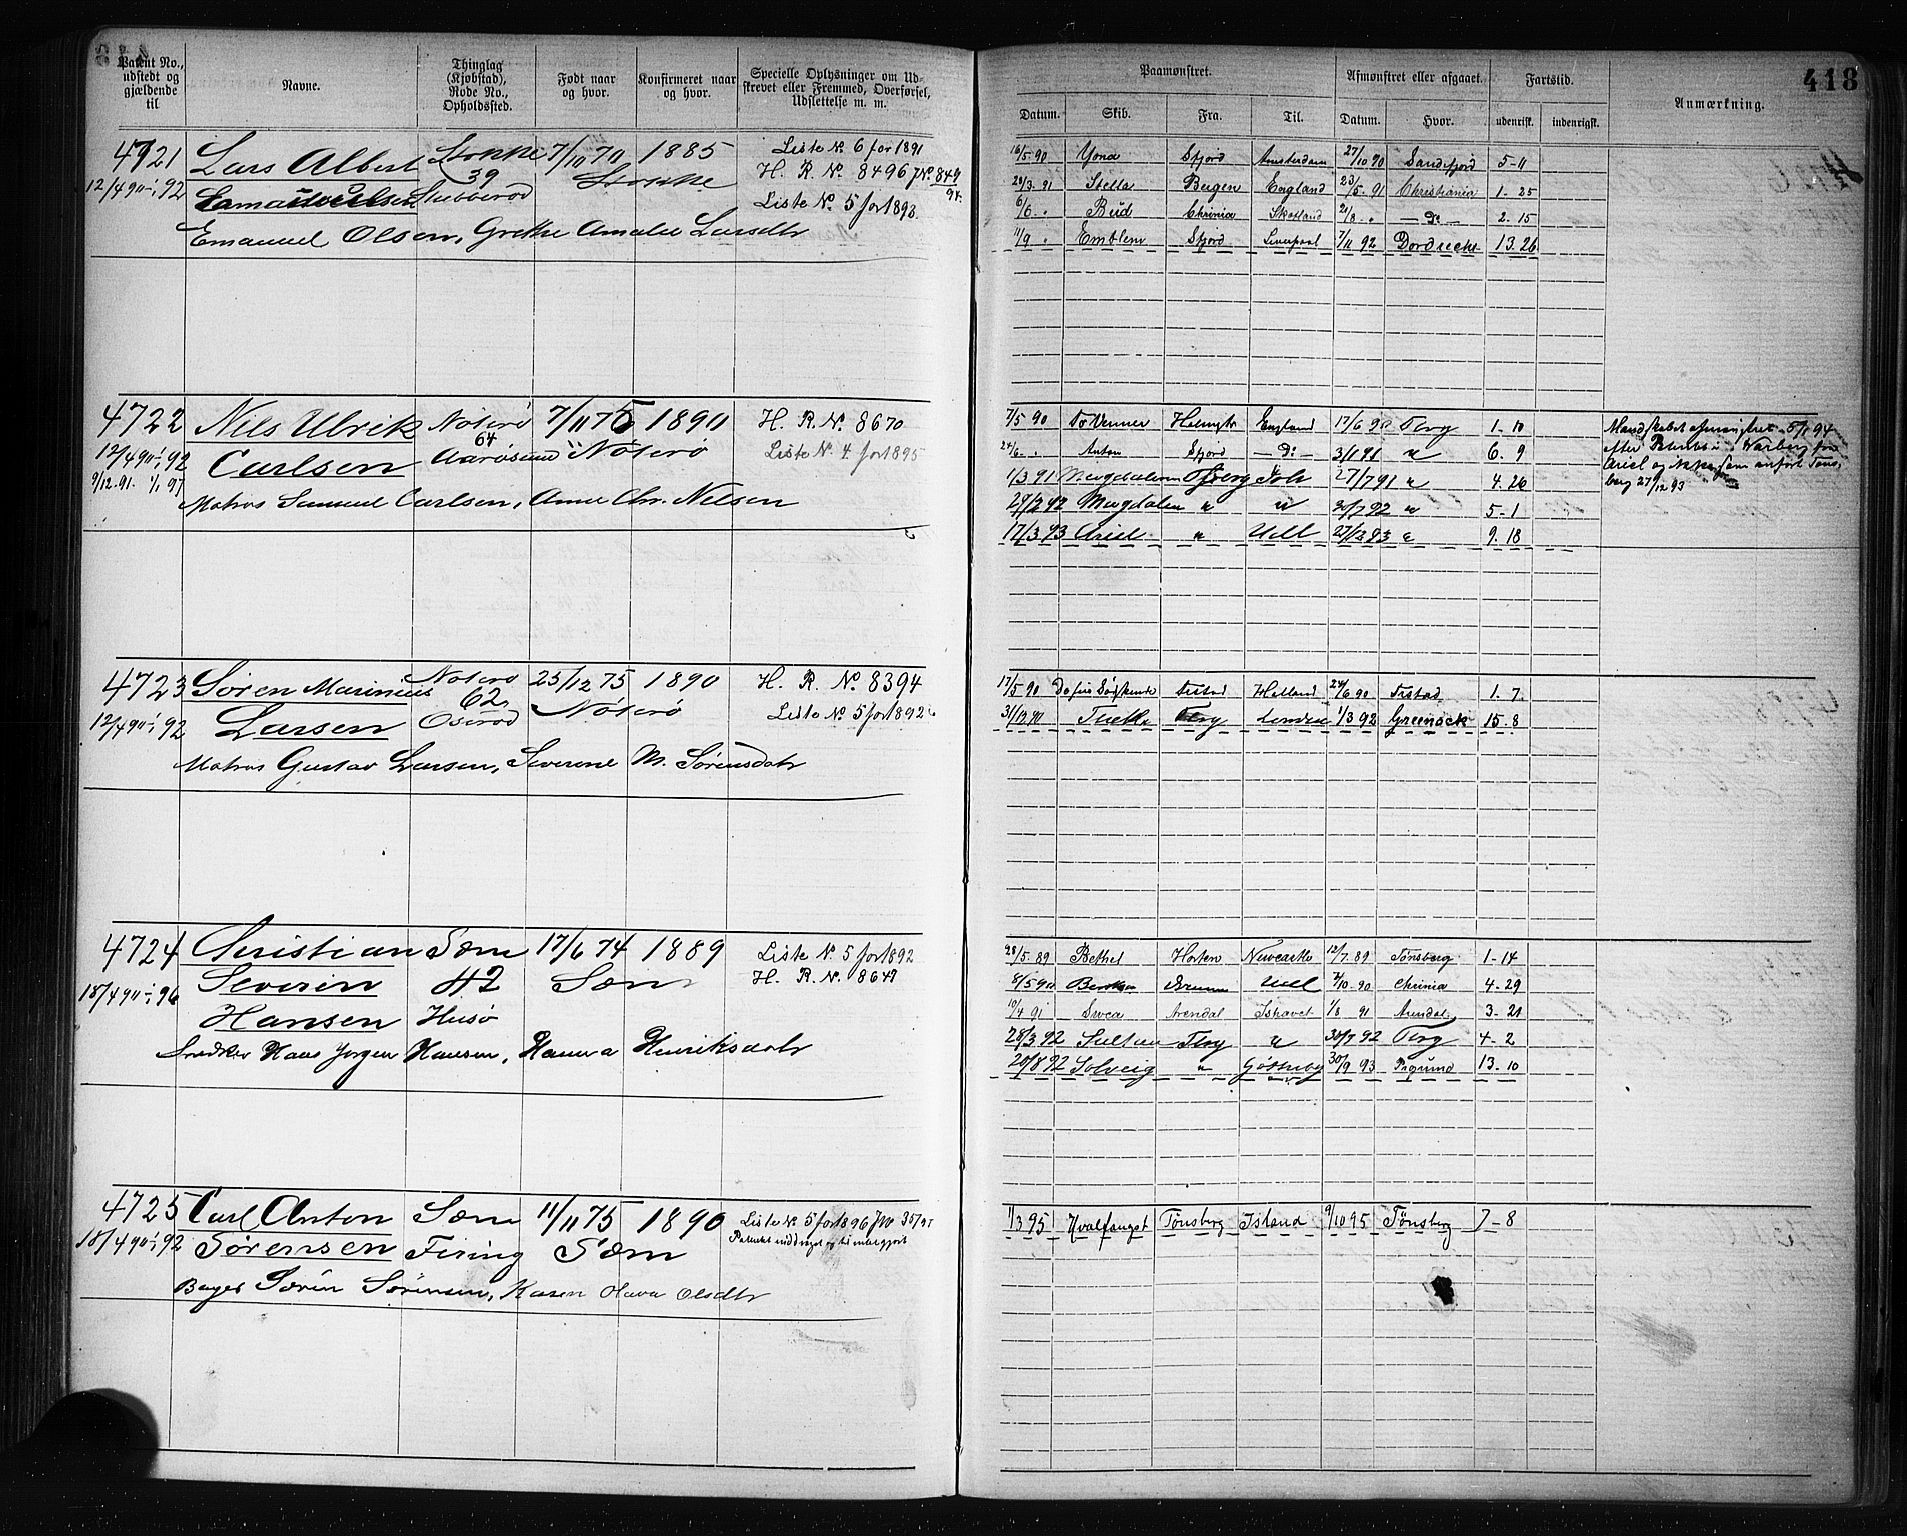 418
Patent No., udstedt og gjældende til
Navne.
Thinglag (Kjøbstad), Rode No., Opholdssted.
Født naar og hvor.
Konfirmeret naar og hvor.
Specielle Oplysninger om Udskrevet eller Fremmed, Overførsel, Udslettelse m. m.
Paamønstret.
Afmønstret eller afgaaet.
Fartstid.
Anmærkning.
Datum. Skib. Fra. Til. Datum. Hvor. udenrigsk. indenrigsk.
4721 Lars Albert Stokke 7/10 70 1885 Liste No. 6 for 1891
12/4 90 - 1/1 92 39 Stokke H. R. No. 8496 JNo. 849/94.
Stubberød Liste No. 5 for 1893.
Emanuel Olsen, Grethe Amalie Larsdtr
16/5 90 Yona Sfjord Amsterdam 27/10 90 Sandefjord 5-11
28/3 91 Stella Bergen England 23/5 91 Christiania 1-25
6/6 " Bud Chrinia Skotland 21/8 " Do 2.15
11/9 " Emblem Sfjord Liverpool 7/11 92 Dordrecht 13.26
4722 Nils Ulrik Nøterø 7/11 75 1890 H. R. No. 8670
12/4 90 - 1/1 92 Carlsen 64 Nøterø Liste No. 4 for 1895
9/12 91 - 1/1 97 Aarøsund
Matros Samuel Carlsen, Anne Chr. Nielsen
7/5 90 Holmestr England 17/6 90 Tbrg 1-10
24/6 " Anton Sfjord Do 3/11 91 " 6.9
1/3 91 Magdalena Tbrg Ish 27/7 91 " 4.26
29/2 92 Magdalen " " 92 " 5-1
17/3 93 Ariel " Udl 27/12 93 " 9.18
Mandskabet afmønstret 5/1 94
efter i Warberg fra
Ariel og ikke som anført Tøns-
berg 27/12 93
4723 Søren Marinius Nøterø 25/12 75 1890 H. R. No. 8394
12/4 90 - 1/1 92 Larsen 62 Nøterø Liste No. 5 for 1892
Oserød
Matros Gustav Larsen, Severine M. Sørensdatr
17/5 90 De fire Søskende Frstad Holland 24/6 90 Frstad 1.7
31/12 90 Tbrg London 1/3 92 Greenock 15.8
4724 Christian Sæm 17/6 74 1889 Liste No. 5 for 1892
18/4 90 - 1/1 96 Severin 42 Sæm H. R. No. 8649
Hansen Husø
Snedker Hans Jørgen Hansen, Hanna Henriksdatr
28/5 89 Bethel Horten Newcastle 12/7 89 Tønsberg 1-14
8/5 90 Udl 7/10 90 Chrinia 4.29
10/4 91 Svea Arendal Ishavet 1/8 91 Arendal 3-21
28/3 92 Sultan Tbrg " 30/7 92 Tbrg 4-2
20/8 92 Solveig " Gøteborg 30/9 93 Prgrund 13.10
4725 Carl Anton Sæm 11/11 75 1890 Liste No. 5 for 1896 JNo 35/97
18/4 90 - 1/1 92 Sørensen Firing Sæm Patentet inddraget og tilintetgjort
Bager Søren Sørensen, Karen Hava Olsdtr
1/3 95 Hvalfanget Tønsberg Island 9/10 95 Tønsberg 7-8